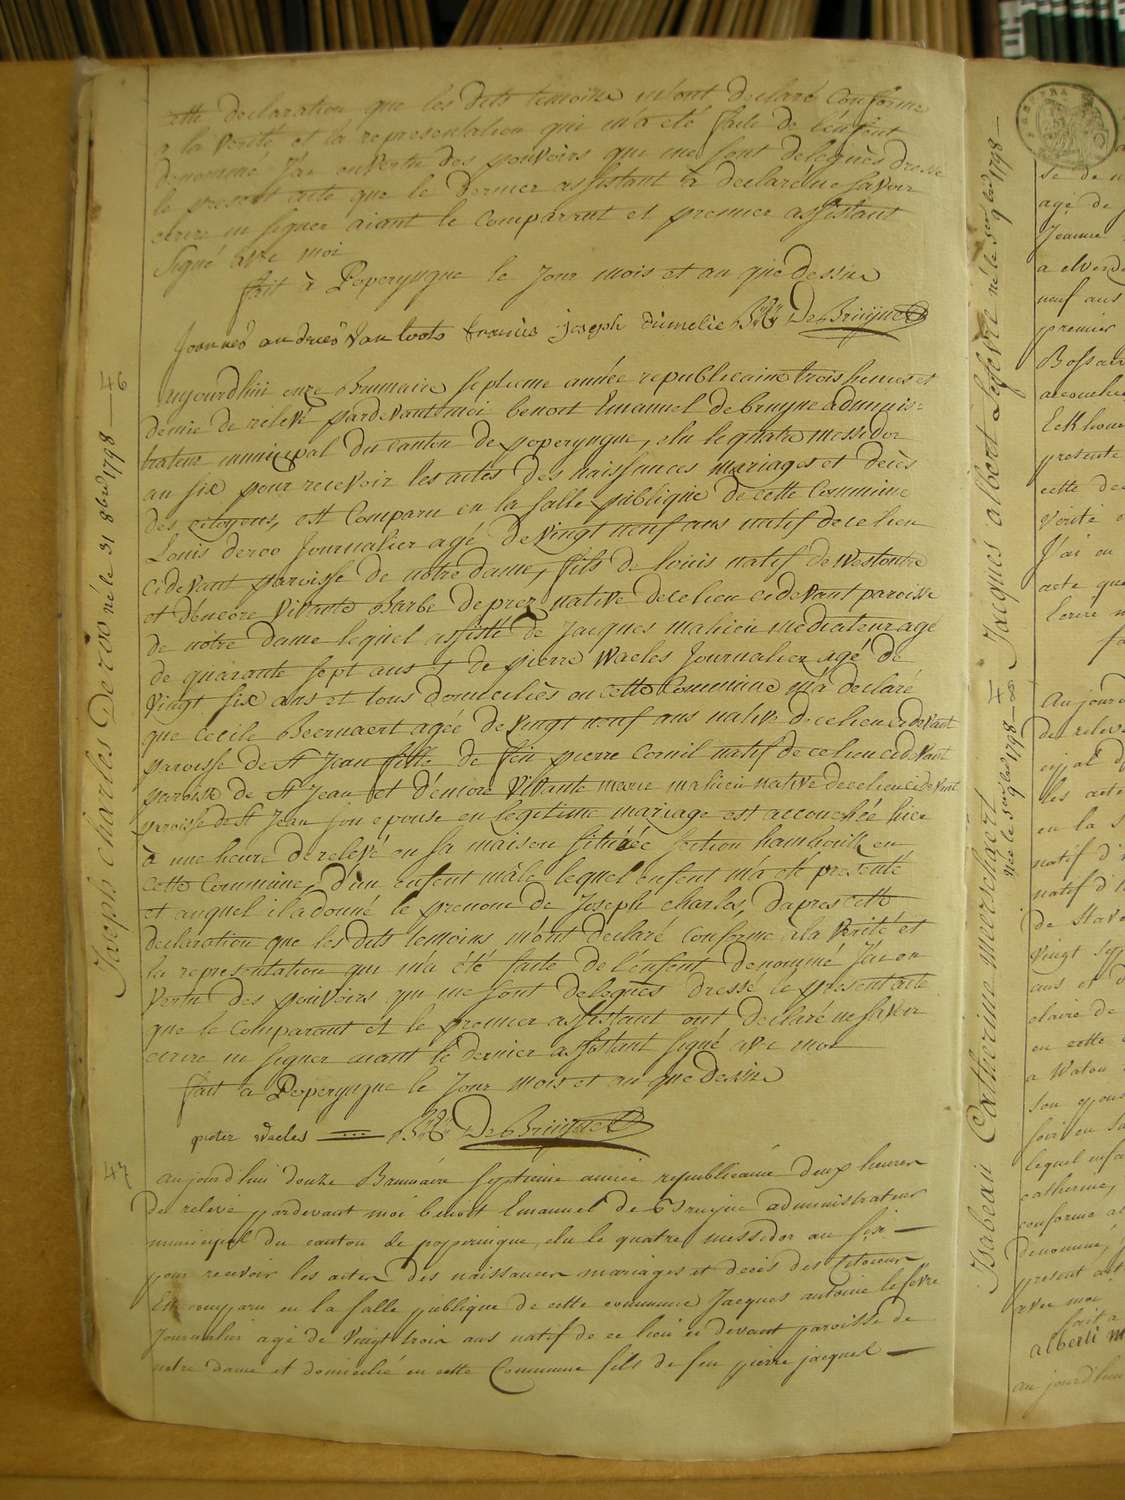 cette declaration que lès Dits temoins m'ont declaré Conforme
a la verité et la representation qui m'a été faite de l'enfent
denommé J'ai en vertu des pouvoirs que me sont deleguès dressé
le present acte que le dernier assistant a declaré ne savoir
ecrire ni signer aiant le Comparant et premier assistant
signé avec moi
fait à Poperyngue le Jour mois et an que dessus
Joannes andries Van toots francis joseph dumelie DeBruyne
46
aujourdhui onze Brumaire septieme année republicaine trois heures et
demie de relevé pardevant moi benoit Emanuel de bruyne adminis=
trateur municipal du canton de poperyngue, elu le quatre messidor
an six pour recevoir les actes des naissances mariages et decès
des citoyens, est Comparu en la salle publique de cette Commune
Louis deroo Journalier agé de vingt neuf ans natif de ce lieu
cidevant paroisse de notre dame, fils de louis natif de westoutre
et d'encore vivante Barbe deprez native de ce lieu cidevant paroisse
de notre dame lequel assisté de Jacques mahieu mediateur agé
de quarante sept ans et de pierre Waeles Journalier agé de
vingt six ans et tous domiciliès en cette Commune m'a declaré
que Cecile Beernaert agée de vingt neuf ans native de ce lieu cidevant
paroisse de St Jean fille de feu pierre Cornil natif de ce lieu cidevant
paroisse de St Jean et d'encore vivante marie mahieu native de ce lieu cidevant
paroisse de St Jean son epouse en legitime mariage est accouchée hier
à une heure de relevé en sa maison situéé section hamhoulk en
cette Commune, d'un enfent mâle lequel enfent m'a eté presenté
et auquel il a donné le prenom de Joseph Charles, Daprès cette
declaration que les Dits temoins m'ont declaré Conforme a la verité et
la representation que m'a été faite de l'enfent denommé J'ai en
vertu des pouvoirs qui me sont deleguès dressé le present acte
que le Comparant et le premier assistant ont declaré ne savoir
ecrire ni signer aiant le dernier assistant signé avec moi
fait a Poperyngue le Jour mois et an que dessus
pieter Waeles DeBruyne
47
aujourd'hui douze Brumaire septieme année republicaine deux heures
de relevé pardevant moi benoit Emanuel de Bruyne administrateur
municipal du canton de poperingue, elu le quatre messidor an six —
pour recevoir les actes des naissances mariages et decès des Citoiens
Est comparu en la salle publique de cette commune Jacques antoine lefevre
Journalier agé de vingt trois ans natif de ce lieu ci devant paroisse de
notre dame et domicilié en cette Commune fils de feu pierre jacques —
Joseph charles De roo né le 31 8bre 1798 —
Jacques albert Lefevre né le 1798 —
Isabeau Catherine merschaert
née le 1798 —
agé de
Jeanne
neuf ans
premier
presente
cette dec
verité
J'ai en
acte que
de releve
les actes
en la s
natif d'
vingt sep
ans et d
claire de
en cette
a Watou
son epous
lequel enfa
catherine,
conforme al
denommé,
present act
avec moi
fait a
alberti m
aujourd'hui